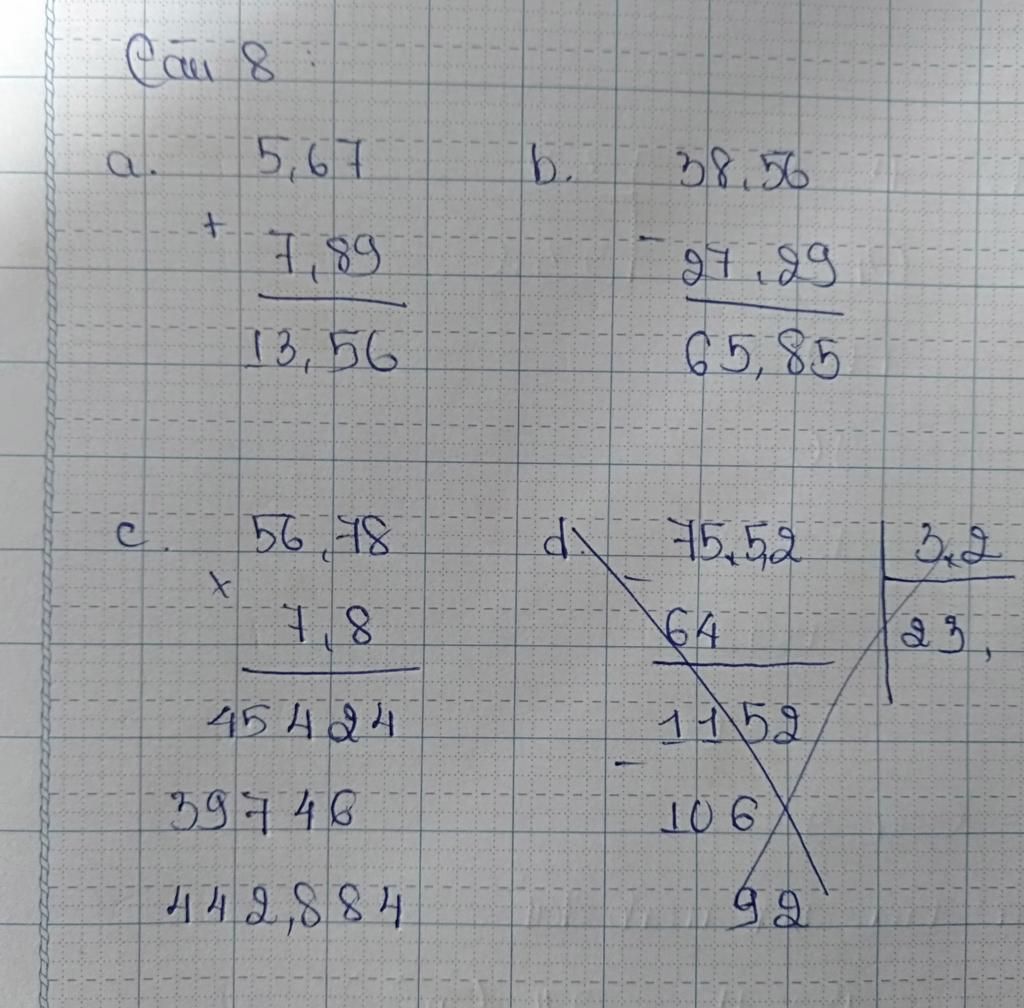 Câu 8 :
a. 5,67
+
7,89
13,56
b. 38,56
-
27,29
65,85
c. 56,78
x
7,8
45424
39746
442,884
d. 75,52 3,2
-
64 23,
1152
-
106
92